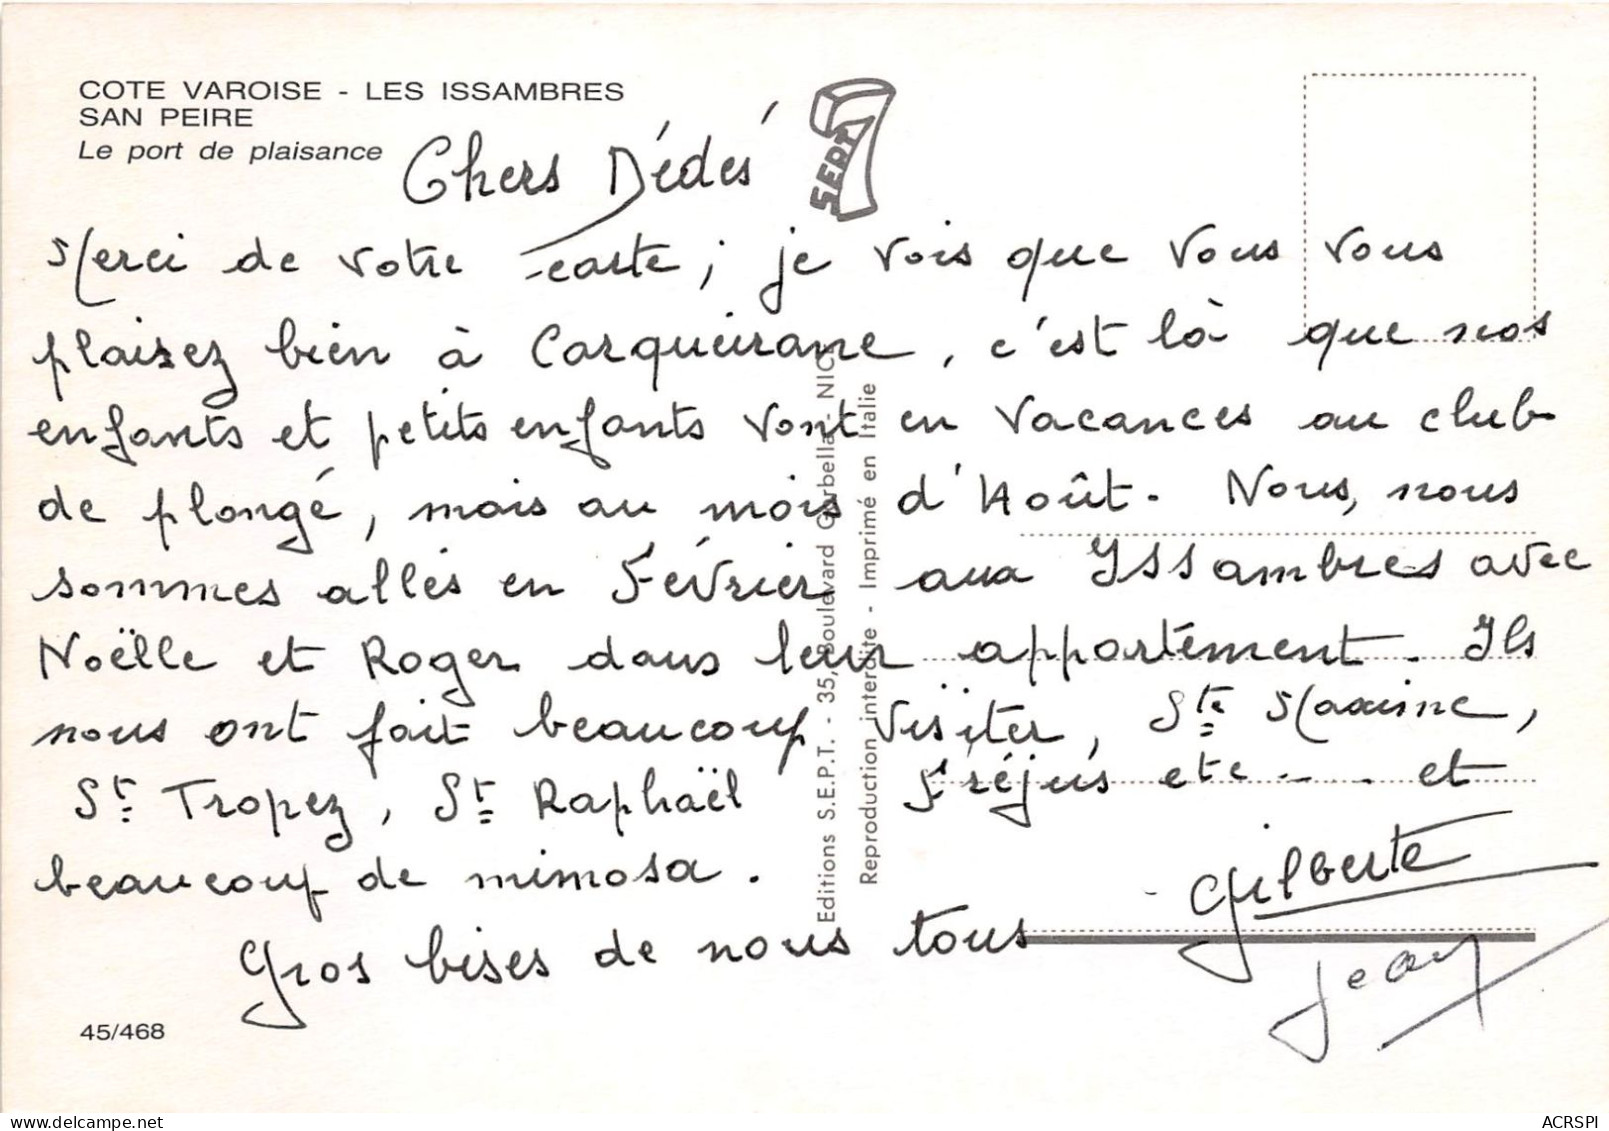 COTE VAROISE - LES ISSAMBRES
SAN PEIRE
Le port de plaisance
SEPT
Chers Dédés
Merci de votre carte ; je vois que vous vous
plaisez bien à Carqueirane, c'est là que nos
enfants et petits enfants vont en vacances au club
de plongé, mais au mois d'Août. Nous, nous
sommes allés en Février aux Issambres avec
Noëlle et Roger dans leur appartement. Ils
nous ont fait beaucoup visiter, Ste Maxime,
St Tropez, St Raphaël Fréjus etc --- et
beaucoup de mimosa.
Gros bises de nous tous
Gilberte
Jean
Editions S.E.P.T. - 35, Boulevard Gorbella - NICE
Reproduction interdite - Imprimé en Italie
45/468
ACRSPI